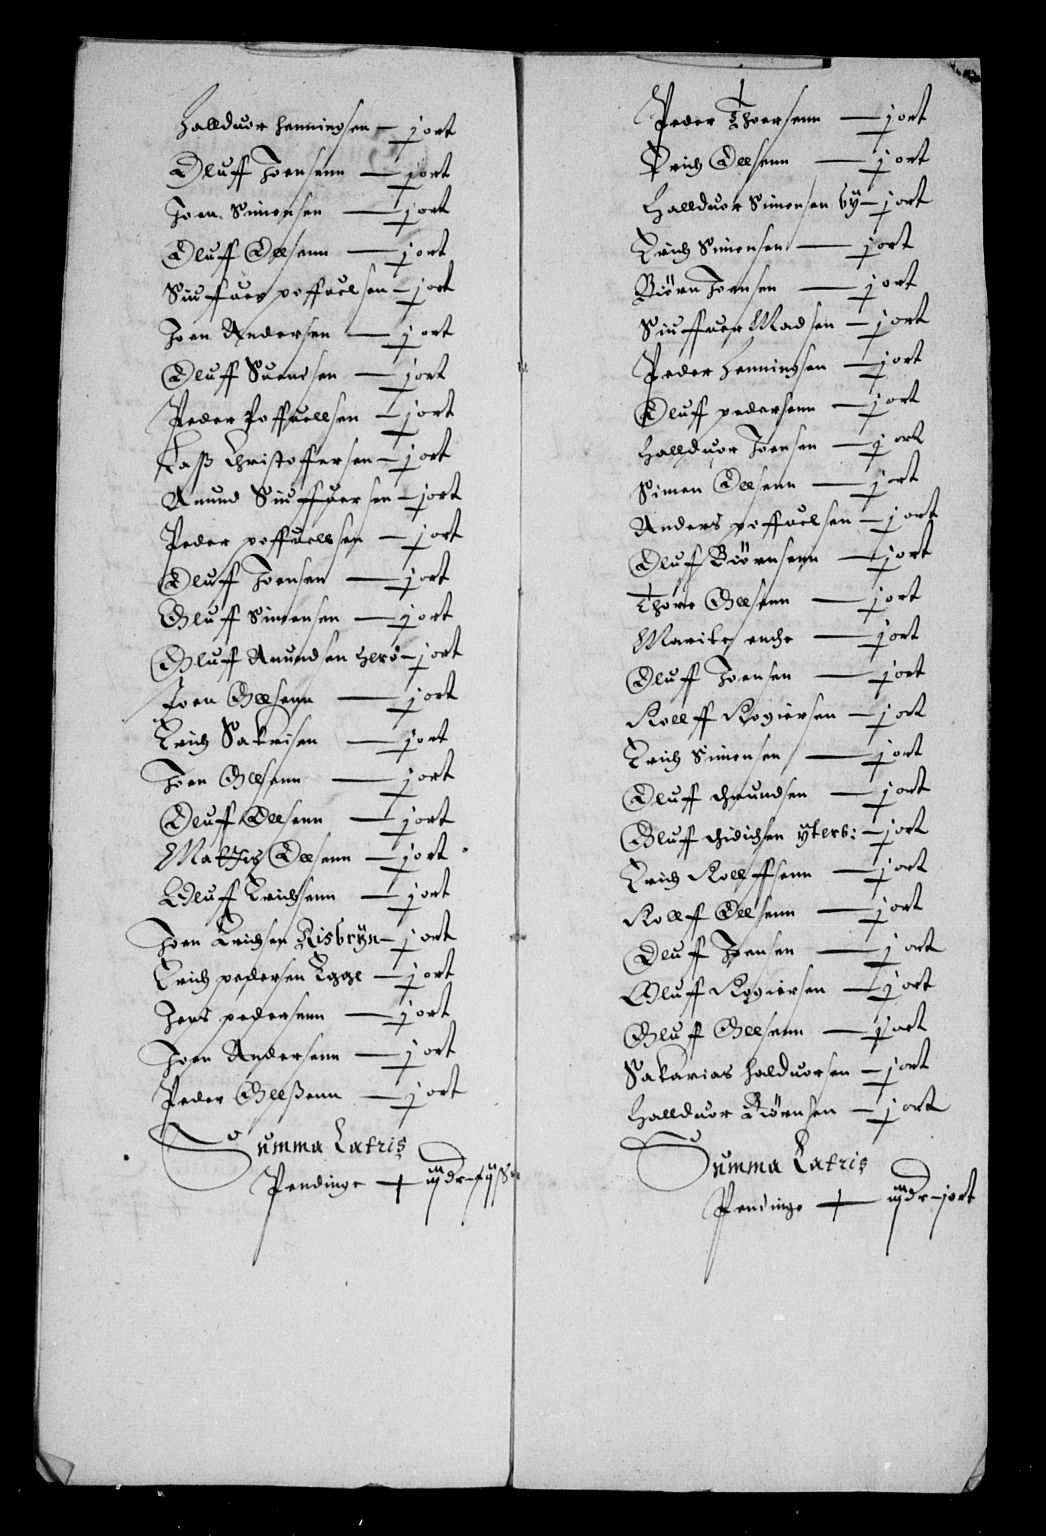 Hallduor Henningsen – j ort
Oluff Joensenn — j ort
Joen Simensen — j ort
Oluff Ollsenn — j ort
Siuffuer poffuelsen – j ort
Joen Andersenn — j ort
Oluff Suendsen — j ort
Peder Poffuellsen – j ort
Laß Christoffersen – j ort
Anund Siuffuersen – j ort
Peder poffuellsen – j ort
Oluff Joensen — j ort
Oluff Simensen — j ort
Oluff Anundsen – j ort
Joen Ollsenn — j ort
Erich Sakrisen — j ort
Joen Ollsenn — j ort
Oluff Ollsenn — j ort
Mattis Ollsenn — j ort
Oluff Erichsenn — j ort
Joen Erichsen Risbryn – j ort
Erich pedersen Egge – j ort
Jens pedersenn — j ort
Joen Andersenn — j ort
Peder Ollßenn — j ort
Summa Latris
Pendinge
Peder Thoersenn — j ort
Erich Ollsenn — j ort
Hallduor Simensen by – j ort
Erich Simensen — j ort
Biørn Joensen — j ort
Siuffuer Madsen – j ort
Peder Henningsen – j ort
Oluff pedersenn – j ort
Hallduor Joensen – j ort
Simen Ollsenn — j ort
Anders poffuelsen – j ort
Oluff Biørnsenn — j ort
Thore Ollsenn — j ort
Marite enche — j ort
Oluff Joensen — j ort
Rollff Rogiersen – j ort
Erich Simensen — j ort
Oluff Amundsen – j ort
Oluff ytterb: – j ort
Erich Rollffsenn – j ort
Rolff Ollsenn — j ort
Oluff Joensen — j ort
Oluff Rogiersen – j ort
Oluff Ollsenn — j ort
Sakarias Halduorsen – j ort
Hallduor Biørnsen – j ort
Summa Latris
Pendinge — dr – j ort